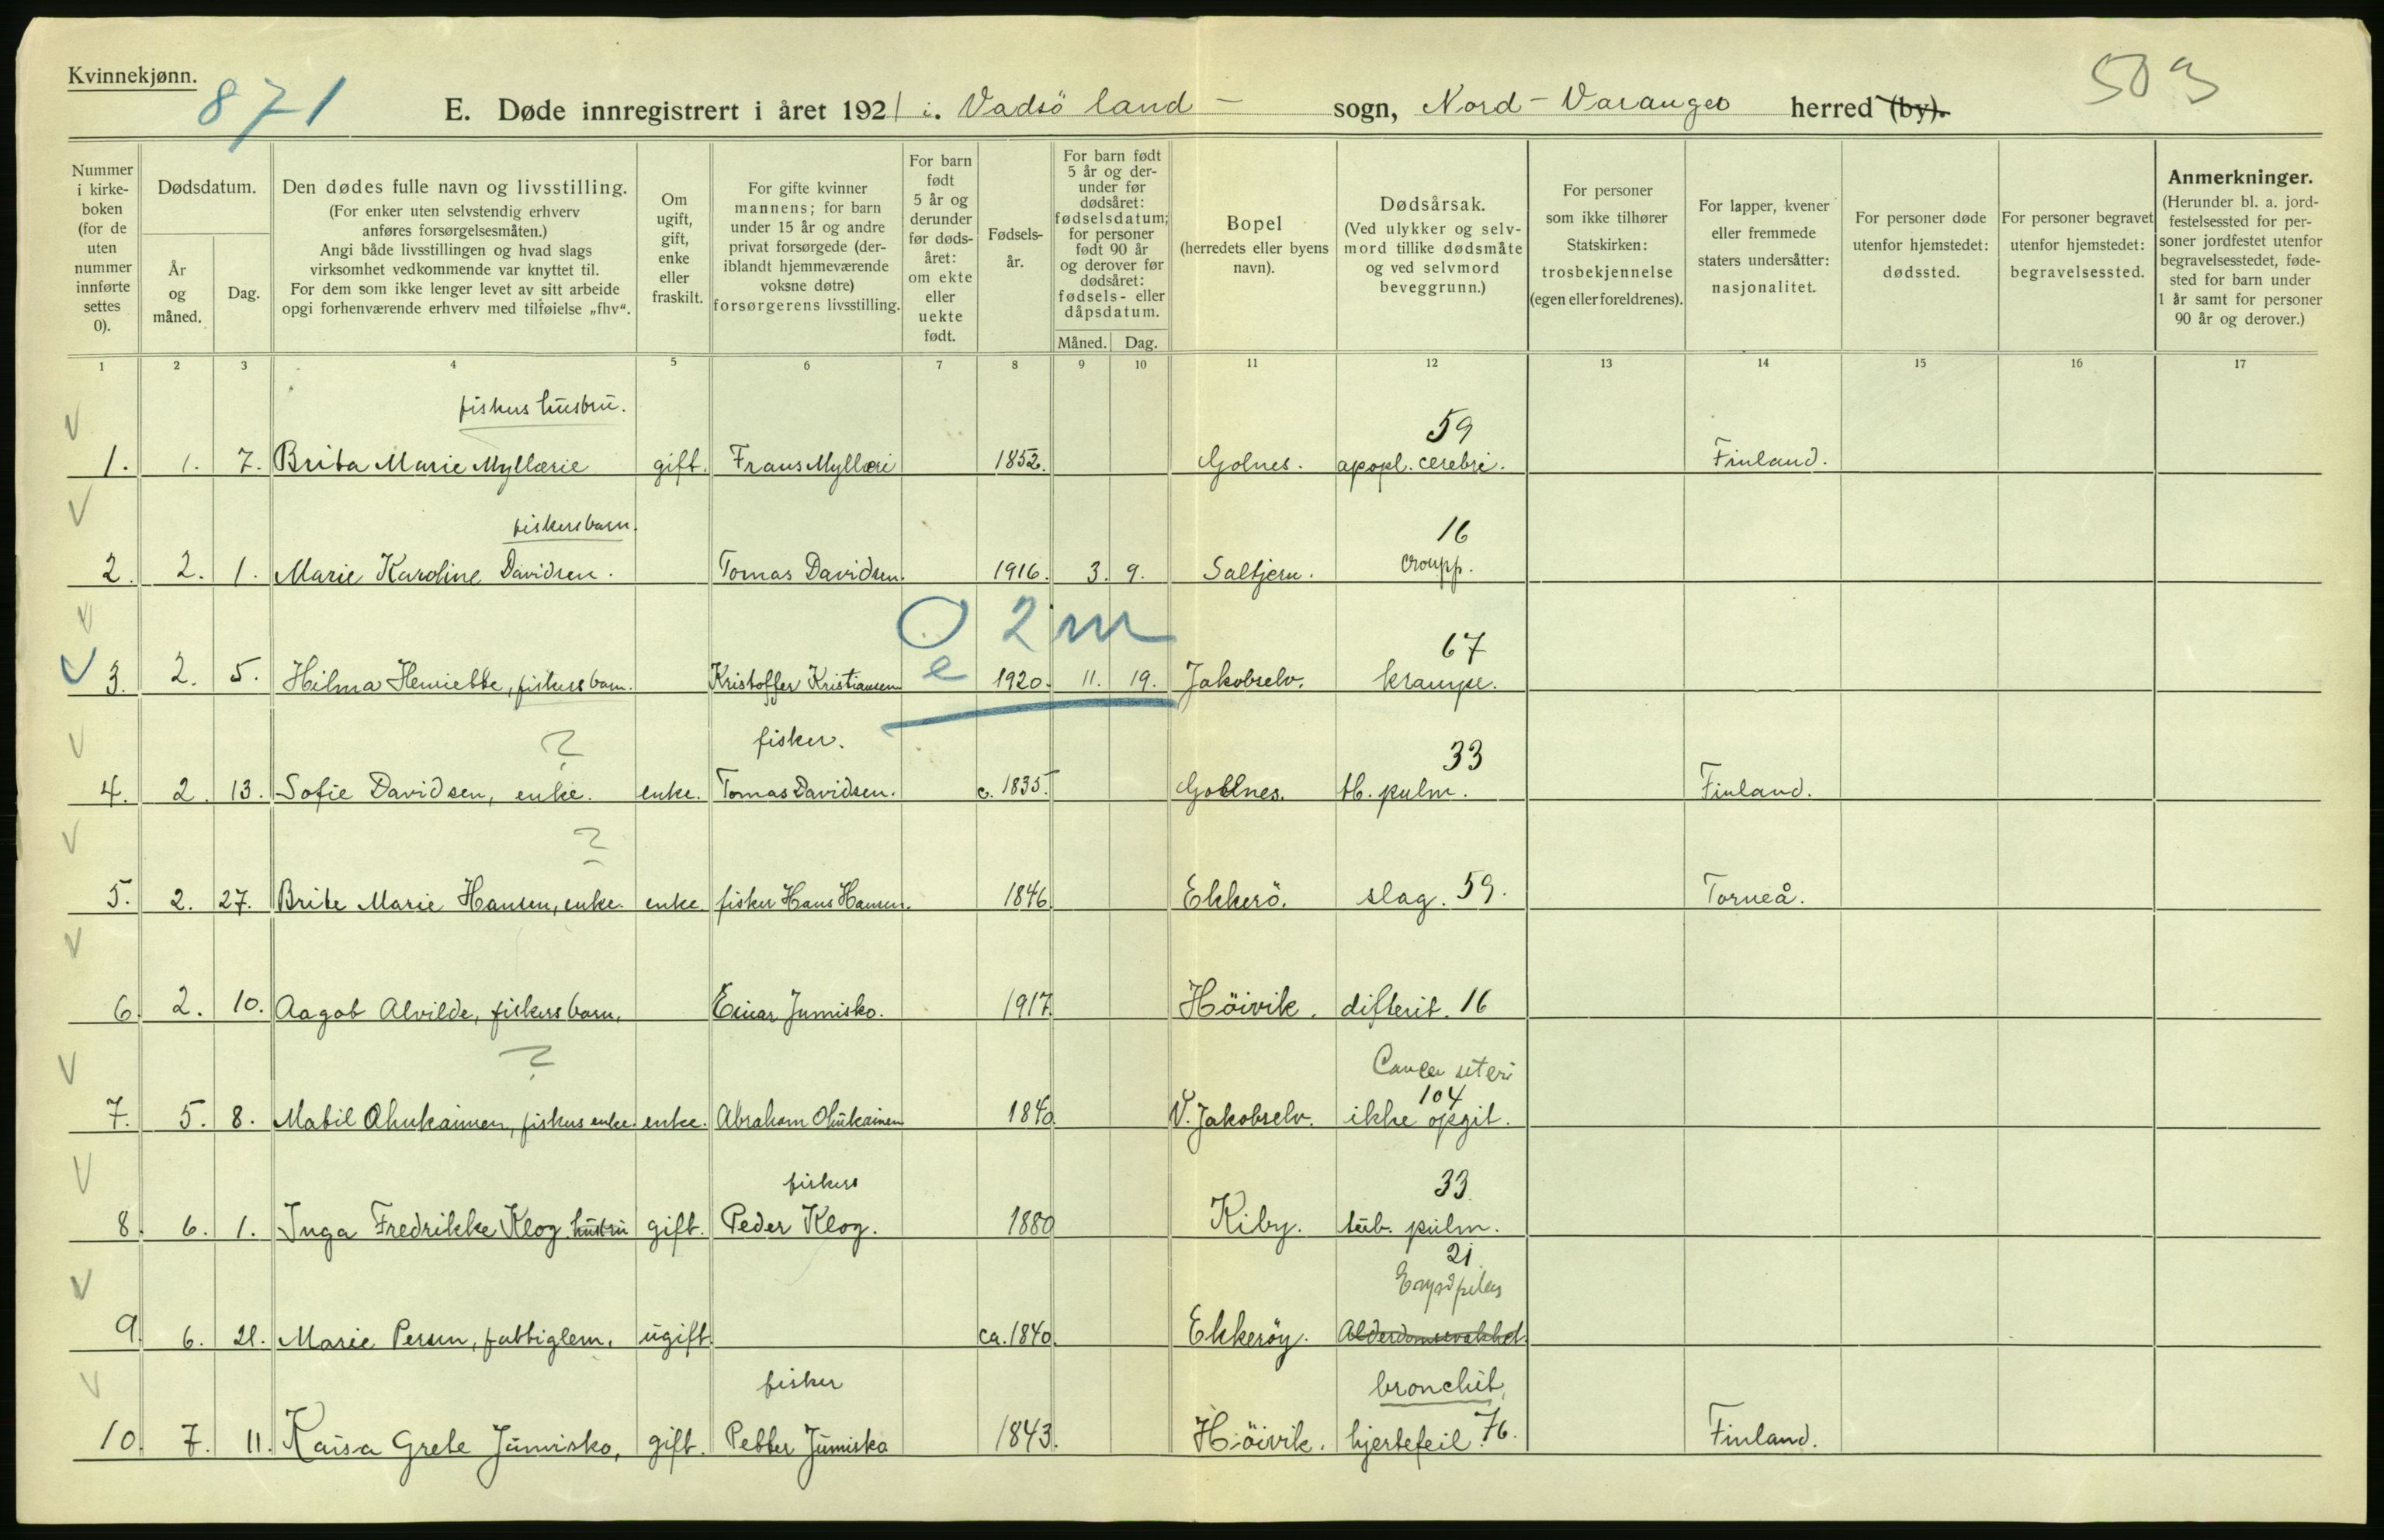 Kvinnekjønn.
871
503
E. Døde innregistrert i året 1921 i. Vadsö land - sogn, Nord-Varanger herred (by).
Nummer i kirke- boken (for de uten nummer innførte settes 0).
Dødsdatum.
År og måned.
Dag.
Den dødes fulle navn og livsstilling.
(For enker uten selvstendig erhverv anføres forsørgelsesmåten.)
Angi både livsstillingen og hvad slags virksomhet vedkommende var knyttet til.
For dem som ikke lenger levet av sitt arbeide opgi forhenværende erhverv med tilføielse „fhv“.
Om ugift, gift, enke eller fraskilt.
For gifte kvinner mannens; for barn under 15 år og andre privat forsørgede (der- iblandt hjemmeværende voksne døtre) forsørgerens livsstilling.
For barn født 5 år og derunder før døds- året: om ekte eller uekte født.
Fødsels- år.
For barn født 5 år og der- under før dødsåret: fødselsdatum; for personer født 90 år og derover før dødsåret: fødsels- eller dåpsdatum.
Måned. Dag.
Bopel
(herredets eller byens navn).
Dødsårsak.
(Ved ulykker og selv- mord tillike dødsmåte og ved selvmord beveggrunn.)
For personer som ikke tilhører Statskirken: trosbekjennelse (egen eller foreldrenes).
For lapper, kvener eller fremmede staters undersåtter: nasjonalitet.
For personer døde utenfor hjemstedet: dødssted.
For personer begravet utenfor hjemstedet: begravelsessted.
Anmerkninger.
(Herunder bl. a. jord- festelsessted for per- soner jordfestet utenfor begravelsesstedet, føde- sted for barn under 1 år samt for personer 90 år og derover.)
1 2 3 4 5 6 7 8 9 10 11 12 13 14 15 16 17
fiskers hüsbrü.
59
1. 1. 7. Brita Marie Myllærie gift. Frans Myllæri 1852. Golnes. apopl. cerebri. Finland.
fiskersbarn.
16
2. 2. 1. Marie Karoline Davidsen. Tomas Davidsen. 1916. 3. 9. Saltjern. croupp.
0 2 m
67
3. 2. 5. Hilma Henriette, fiskers barn. Kristoffer Kristiansen e 1920. 11. 19. Jakobselv. krampe.
? fisker. 33
4. 2. 13. Sofie Davidsen, enke. enke. Tomas Davidsen. c. 1835. Gollnes. tb. pulm. Finland.
?
5. 2. 27. Brite Marie Hansen, enke. enke. fisker Hans Hansen. 1846 Ekkerö. slag. 59. Torneå.
6. 2. 10. Aagot Alvilde, fiskers barn, Einar Jumisko. 1917. Höivik. difterit. 16
? Cancer uteri
104
7. 5. 8. Matil Ohukainen, fiskers enke. enke. Abraham Ohükainen 1840. V. Jakobselv. ikke opgit.
fiskers 33
8. 6. 1. Inga Fredrikke Klog hüstrü gift. Peder Klog. 1880 Kiby. tüb. pülm.
21
Erysipelas
9. 6. 21. Marie Persen, fattiglem, ügift. ca. 1840. Ekkeröy. Alderdomssvakhet
fisker bronchit,
10. 7. 11. Kaisa Grete Jümisko, gift. Petter Jümisko 1843. Höivik. hjertefeil 76. Finland.